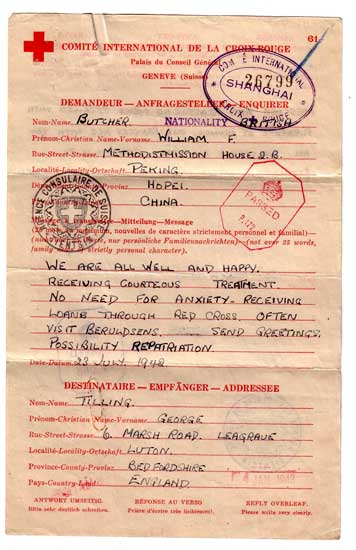 61
COMITÉ INTERNATIONAL DE LA CROIX-ROUGE
Palais du Conseil Général
GENÈVE (Suisse)
COMITÉ INTERNATIONAL
26799
SHANGHAI
CROIX ROUGE
DEMANDEUR — ANFRAGESTELLER — ENQUIRER
Nom-Name BUTCHER NATIONALITY BRITISH
Prénom-Christian Name-Vorname WILLIAM F.
Rue-Street-Strasse METHODIST MISSION HOUSE 2.B.
Localité-Locality-Ortschaft PEKING
HOPEI.
CHINA.
AGENCE CONSULAIRE DE SUISSE
TIENTSIN
PASSED
Mitteilung—Message
(25 mots maximum, nouvelles de caractère strictement personnel et familial)—
nur persönliche Familiennachrichten)—(not over 25 words,
family strictly personal character).
WE ARE ALL WELL AND HAPPY.
RECEIVING COURTEOUS TREATMENT.
NO NEED FOR ANXIETY - RECEIVING
LOANS THROUGH RED CROSS. OFTEN
VISIT BERULDSENS. SEND GREETINGS.
POSSIBILITY REPATRIATION.
Date-Datum 23 JULY. 1942
DESTINATAIRE — EMPFÄNGER — ADDRESSEE
Nom-Name TILLING.
Prénom-Christian Name-Vorname GEORGE
Rue-Street-Strasse 6. MARSH ROAD. LEAGRAVE
Localité-Locality-Ortschaft LUTON.
Province-County-Provinz BEDFORDSHIRE
Pays-Country-Land ENGLAND
ANTWORT UMSEITIG. RÉPONSE AU VERSO REPLY OVERLEAF.
Bitte sehr deutlich schreiben. Prière d'écrire très lisiblement. Please write very clearly.